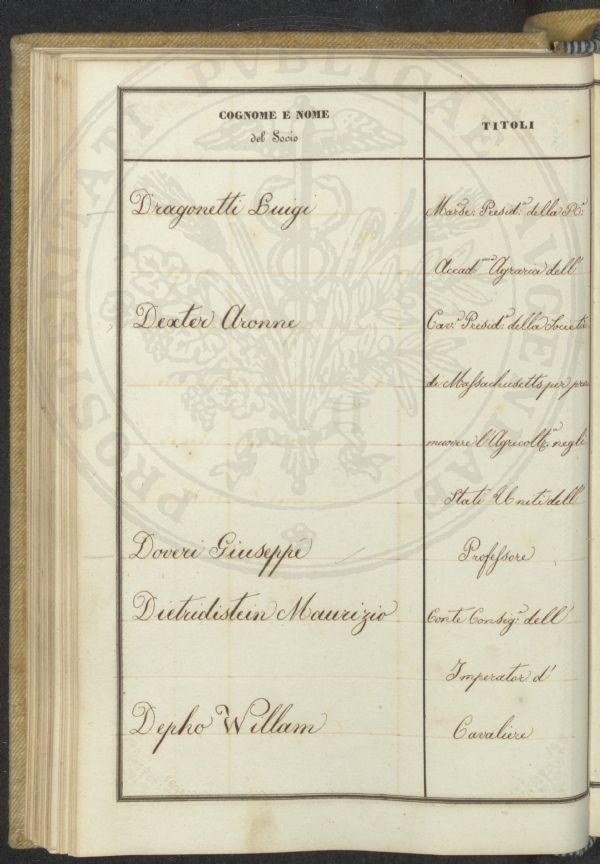 PROSPERITATI PVBLICAE AVGENDAE
COGNOME E NOME
del Socio
TITOLI
Dragonetti Luigi
Marse: Presid.e della R.a
Accad.mia Agraria dell'
Dexter Aronne
Cav.e Presid.e della Società
di Massachusetts per pro
muovere l'Agricolt.a negli
Stati Uniti dell'
Doveri Giuseppe
Professore
Dietridistein Maurizio
Conte Consig.e dell'
Imperator d'
Depho Willam
Cavaliere